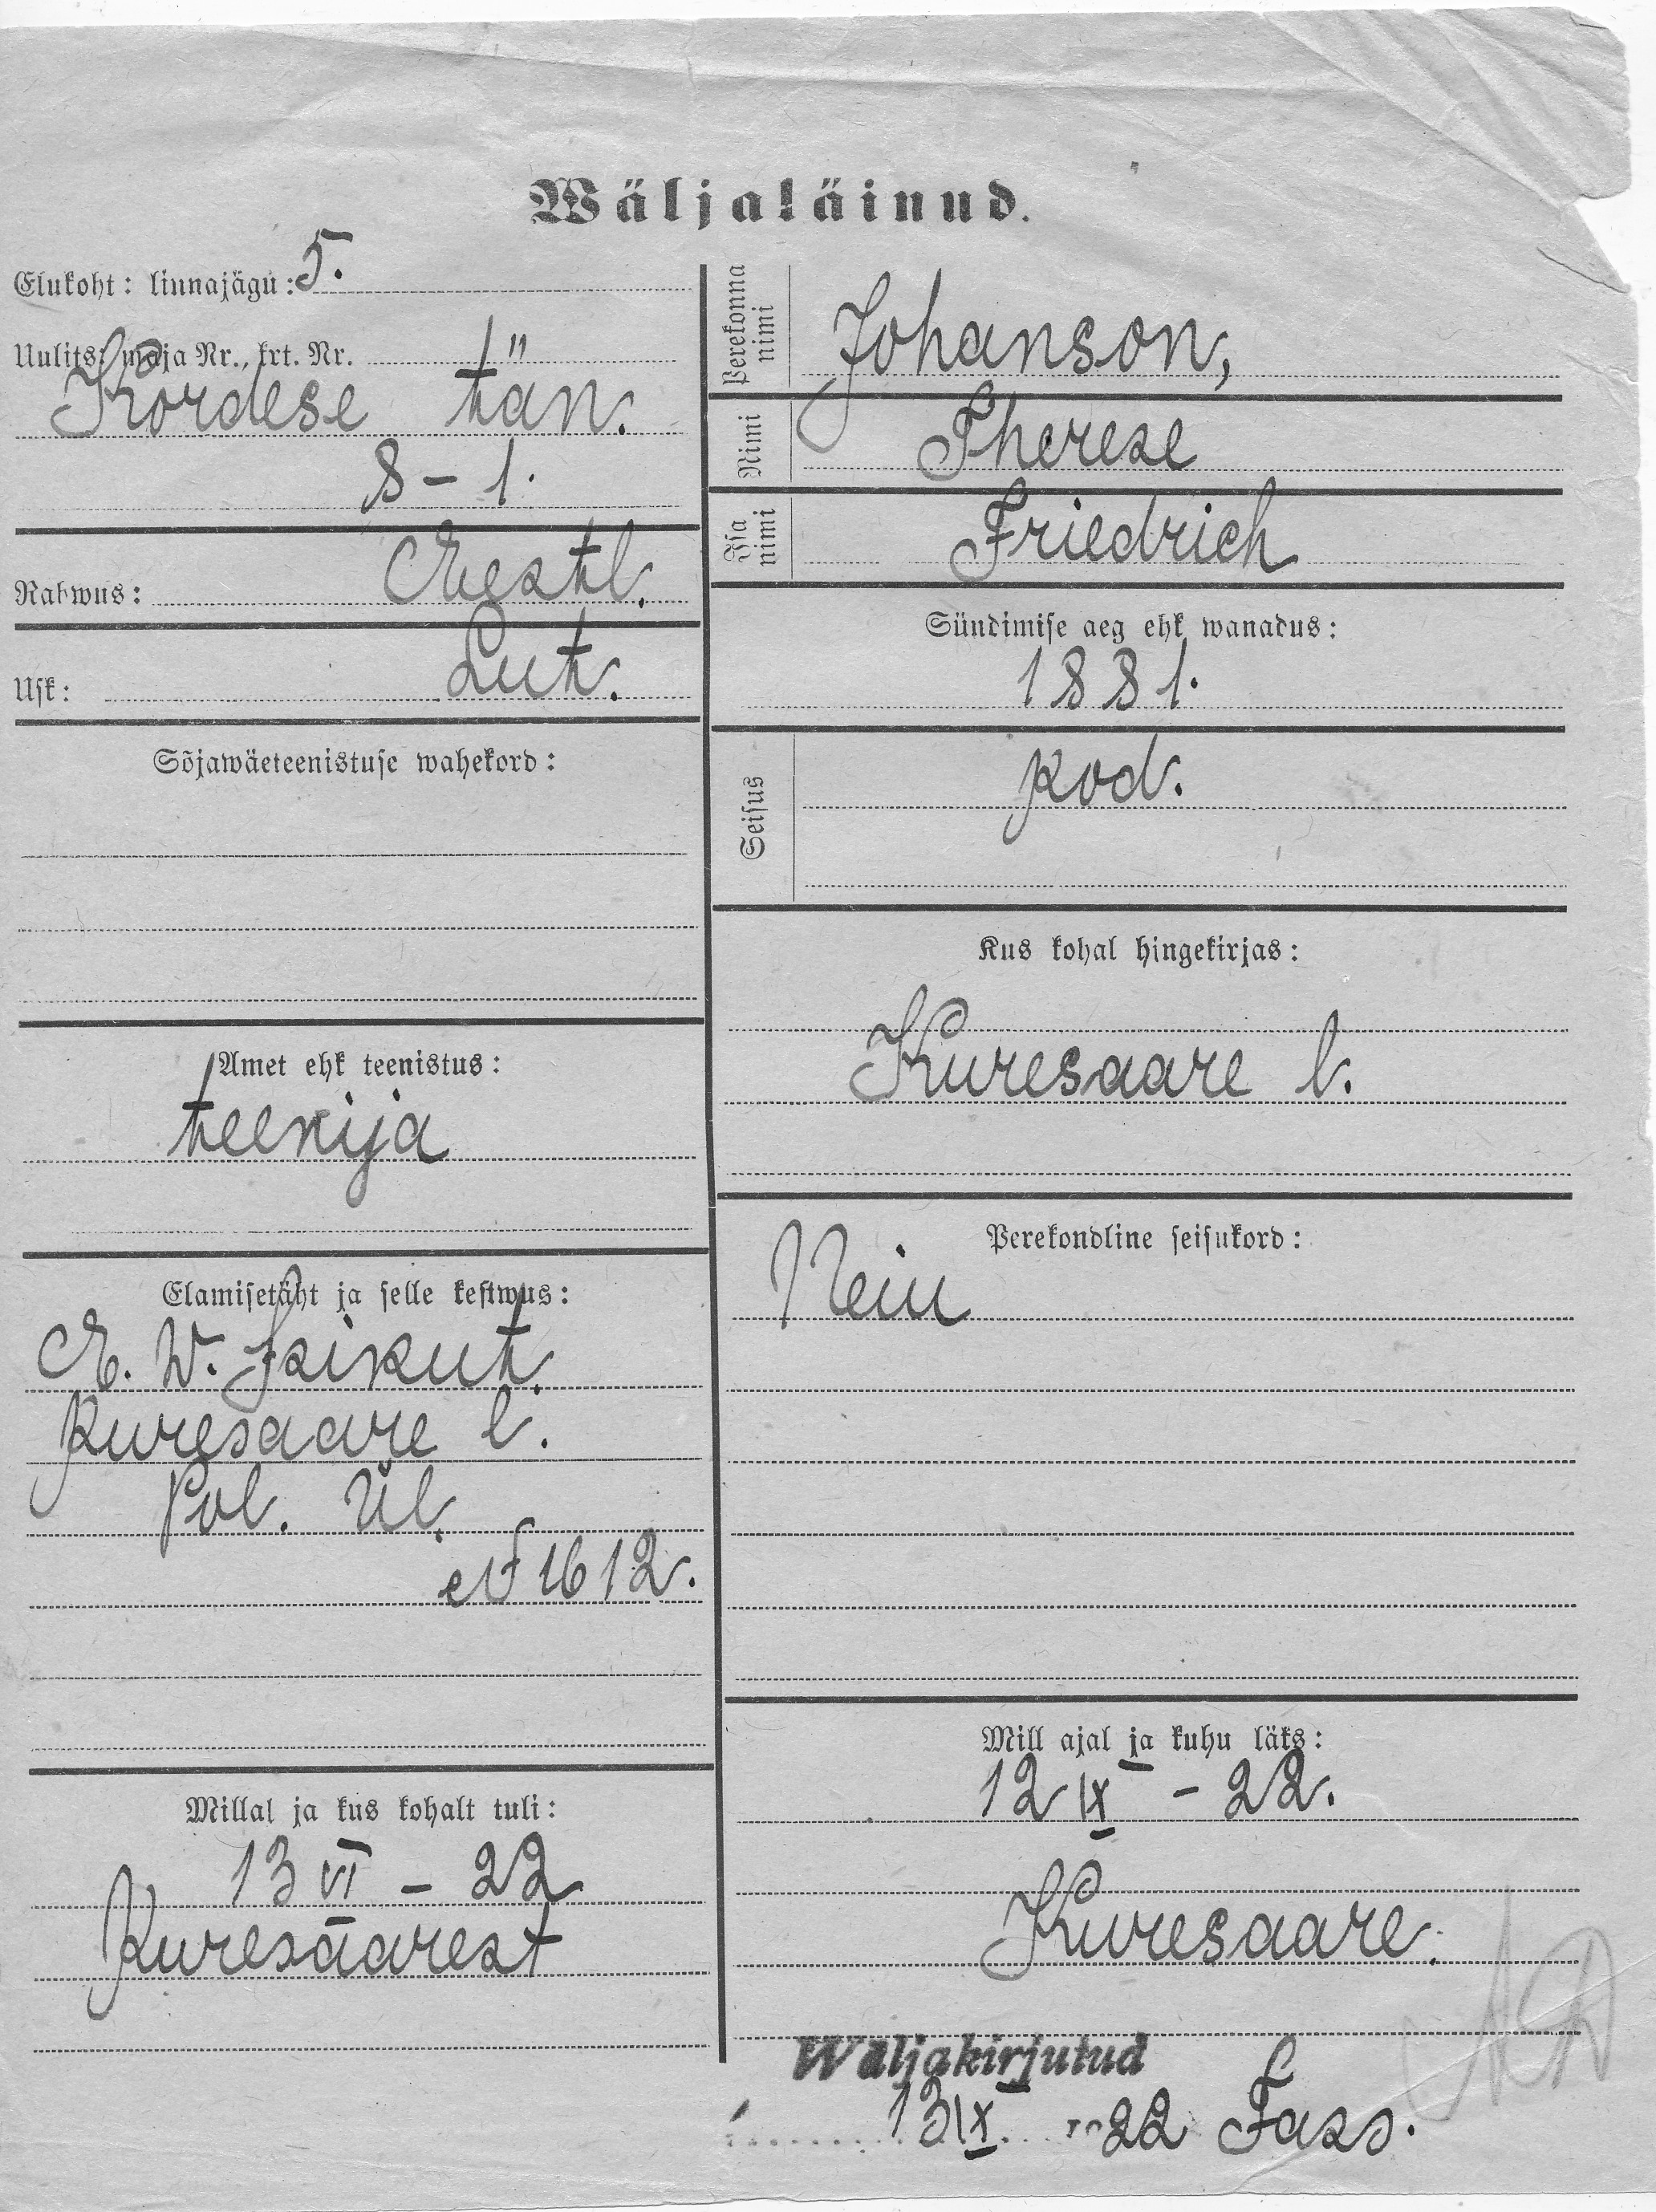 Wäljaläinud.
Elukoht: linnajägu: 5.
Uulits: maja Nr., krt. Nr.
Kordese tän.
8 – 1.
Rahwus: Eestl.
Usk: Lut.
Sõjawäeteenistuse wahekord:
Amet ehk teenistus:
teenija
Elamisetäht ja selle kestwus:
E. W. Isikut.
Kuresaare l.
Pol. Ül.
№ 1612.
Millal ja kus kohalt tuli:
13 VI – 22
Kuresaarest
Perekonna nimi
Johanson,
Nimi
Therese
Isa nimi
Friedrich
Sündimise aeg ehk wanadus:
1881.
Seisus
kod.
Kus kohal hingekirjas:
Kuresaare l.
Perekondline seisukord:
Neiu
Mill ajal ja kuhu läks:
12 IX – 22.
Kuresaare.
Wäljakirjutud
13 IX 22 Fass.